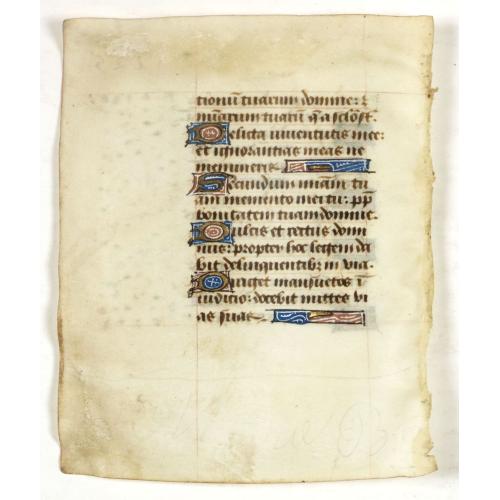 tionũ tuarum domine: ⁊
mĩarum tuarũ q̃ a sclo sẽ.
Delicta iuventutis mee:
et ignorantias meas ne
memineris.
Secundum mĩam tu
am memento mei tu: pp̃
bonitatem tuam domine.
Dulcis et rectus domi
nus: propter hoc legem da
bit delinquentibꝫ in via.
Diriget mansuetos ĩ
iudicio: docebit mittes vi
as suas.